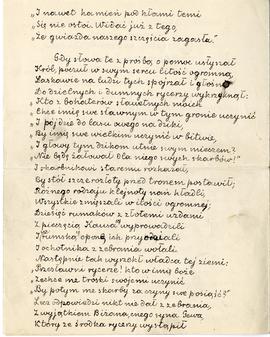 „I nawet kamień pod kłami temi
„Się nie ostoi. Widać już z tego,
„Że gwiazda naszego szczęścia zagasła."
Gdy słowa te z prośbą o pomoc usłyszał
Król, poczuł w swym sercu litość ogromną,
Łaskawie na ludzi tych spojrzał i głośno
Do dzielnych i dumnych rycerzy wykrzyknął:
„Kto z bohaterów sławetnych moich
„Chce imię swe sławnym w tym gronie uczynić
„I pójdzie do lasu owego na dziki
„By imię swe wielkiem uczynić w bitwie,
„I głowy tym dzikom utnie swym mieczem?
„Nie będę żałował dla niego swych skarbów!"
I skarbnikowi staremu rozkazał,
By stół szczerozłoty przed tronem postawił;
Różnego rodzaju klejnoty nań kładli,
Wszystkie zmieszali w ilości ogromnej;
Dziesięć rumaków z złotemi uzdami
Z pieczęcią Kausa wyprowadzili
opną ich przybrali
I ochotnika z zebrania wołali.
Następnie tak wyrzekł władca tej ziemi:
„Przesławni rycerze! kto w imię boże
„Zechce me troski swojemi uczynić
„By potym me skarby za czyny swe posiąść?"
Lecz odpowiedzi nikt nie dał z zebrania,
Z wyjątkiem Biżana, syna Gewa,
Który ze środka rycerzy wystąpił